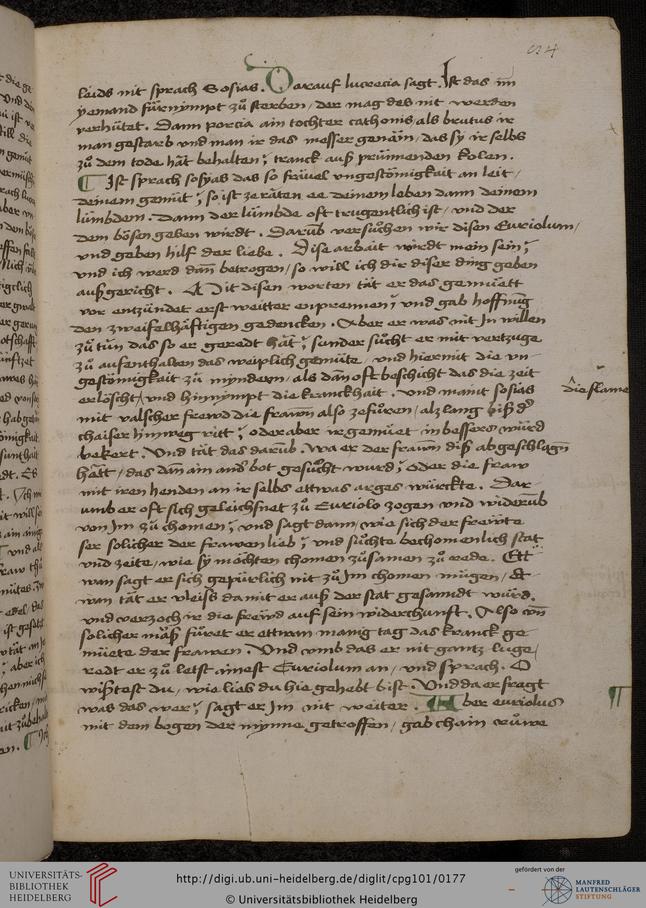 leids nit sprach Sosias. Darauf lucrecia sagt. Ist das im
yemand fürnympt zů sterben / der mag des nit werden
verhůtet. Dann porcia ain tochter cathonis als brutus ir
man gestarb vnd man ir das messer genam / das sy ir selbs
zů dem tode hät behalten; tranck auß prünnenden kolen.
¶ Ist sprach sosyas das so früuel vngestömigkait an leit /
deinem gemüt; so ist ze räten ee deinem leben dann deinem
lümbdem. Dann der lümbde oft trugentlich ist / vnd der
dem bösen geben wirdt. Darūb versůchen wir disen Euriolum /
vnd geben hilf der liebe. Dise arbait wirdt mein sein;
vnd ich werd dan̄ betrogen / so will ich dir diser ding geben
außgericht. Mit disen worten tät er das gemüett
vor entzündet erst weitter enprennen; vnd gab hoffnūg
den zweifelhäftigen gedencken. Aber er was nit In willen
zů tůn das so er geredt hät; sunder sůcht er mit vertzuge
zů aufenthalten das weiplich gemüte / vnd hiermit die vn-
gestömigkait zů myndern / als dan̄ oft beschicht das die zeit
erlöscht / vnd hinnympt die kranckhait. vnd maint sosias
die flame
mit valscher frewd die frawn also zefüren / alzlang biß dʳ
chaiser hinweg ritt; oder aber ir gemüet in bessers würd
bekert. Vnd tät das darūb. Wa er der frawn diß abgeschlagn
hett / das dan̄ ain andʳ bot gesůcht wurd; oder die fraw
mit iren henden an ir selbs ettwas arges würckte. Dar-
umb er oft sich geleichsnet zů Euriolo zogen vnd widerūb
von Im zů chomen; vnd sagt dann / wie sich der frewte
ser solicher der frawen lieb; vnd sůchte bechomenlich stat
vnd zeite / wie sy möchten chomen zůsamen zů rede. Ett-
wan sagt er sich gepürlich nit zů Im chomen mügen / Et-
wan tät er vleiss damit er auß der stat gesanndt würd.
vnd verzoch ir die frewd auf sein widerchunft. Also vn̄
solicher mäß füret er ettwan manig tag das kranck ge
müete der frawen. Vnd vmb das er nit gantz luge /
redt er zů letst ainest Euriolum an / vnd sprach. O
wißtest du / wie lieb du hie gehebt bist. Vnd da er fragt
was das wer; sagt er Im nit weiter. ¶ Aber euriolus
mit dem bogen der mynne getroffen / gab chain růwe
¶
UNIVERSITÄTS-
BIBLIOTHEK
HEIDELBERG
http://digi.ub.uni-heidelberg.de/diglit/cpg101/0177
© Universitätsbibliothek Heidelberg
gefördert von der
MANFRED
LAUTENSCHLÄGER
STIFTUNG